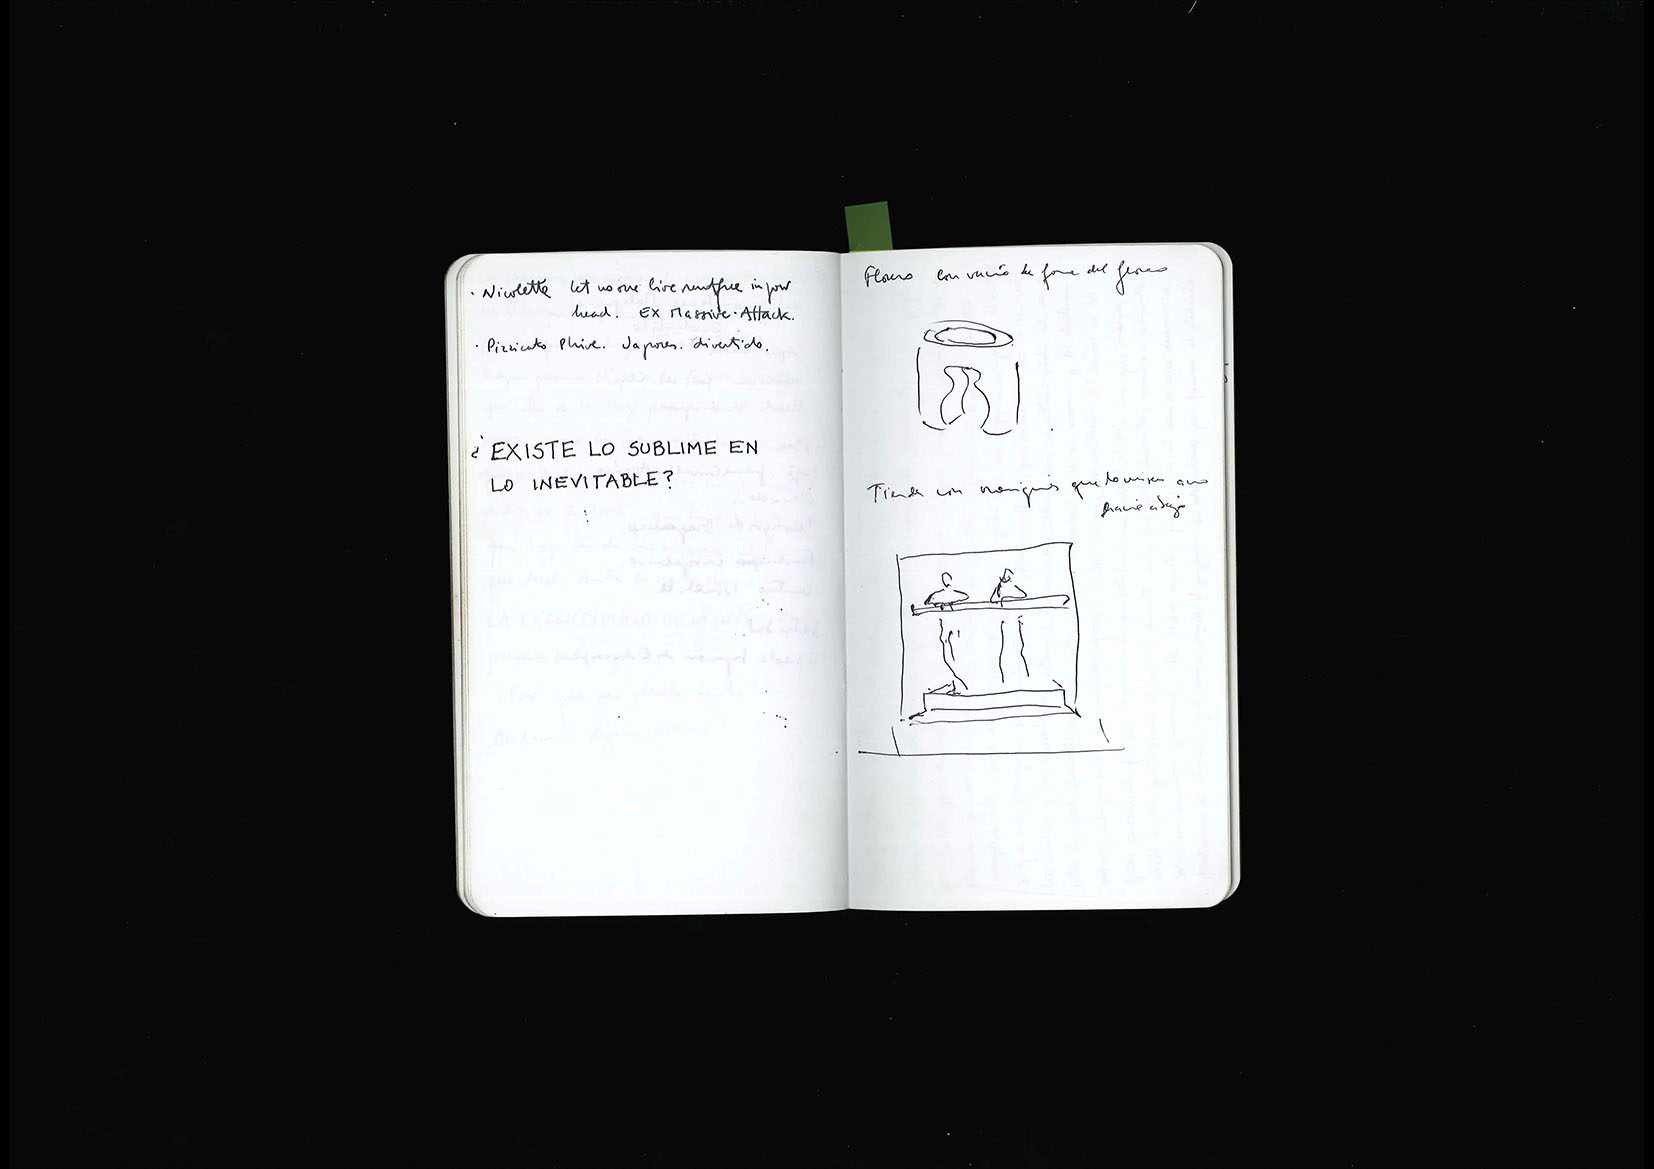 · Nicolettè let no one live rentfree in your
head. EX Massive·Attack.
· Pizzicato Phive. Japores. divertido.
¿ EXISTE LO SUBLIME EN
LO INEVITABLE?
Florero con vacío de forma del florero
Tienda con maniquís que
hacia abajo